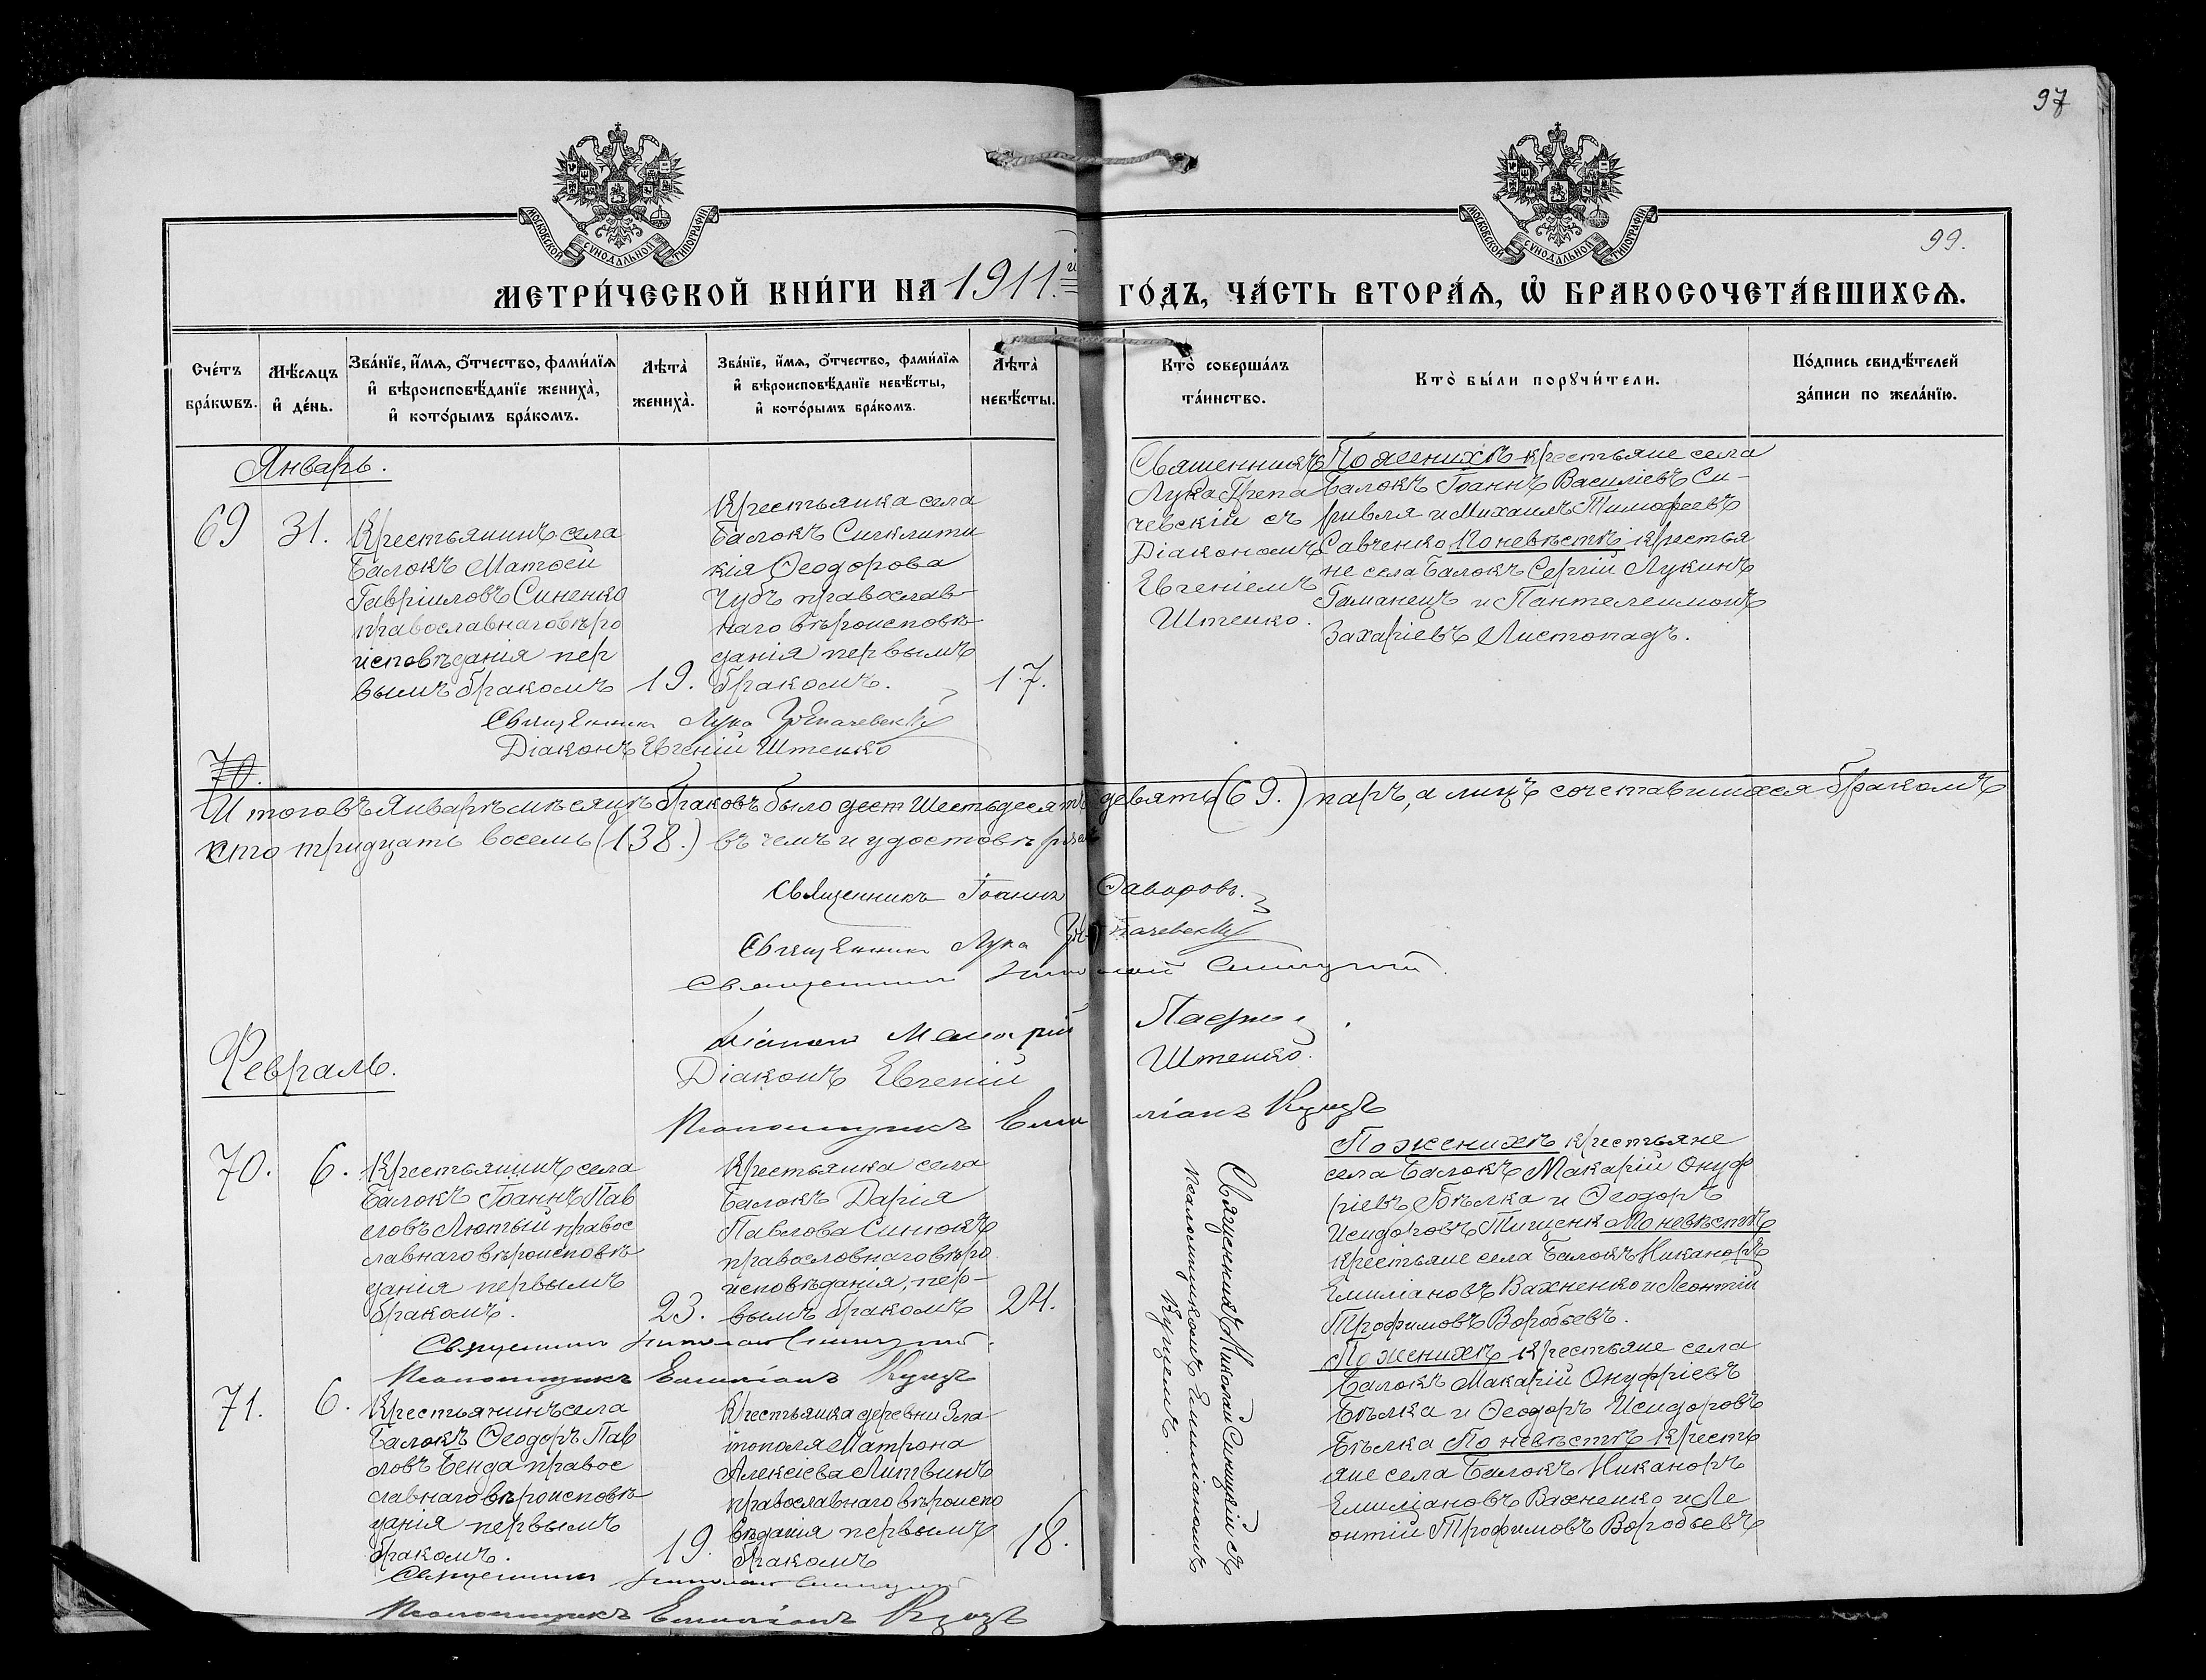 97
МОСКОВСКОЙ СѴНОДАЛЬНОЙ ТИПОГРАФІИ.
МОСКОВСКОЙ СѴНОДАЛЬНОЙ ТИПОГРАФІИ.
99.
МЕТРИ́ЧЕСКОЙ КНИ́ГИ НА 1911.й ГО́ДЪ, ЧА́СТЬ ВТОРА́Ѧ, Ѽ БРАКОСОЧЕТА́ВШИХСѦ.
Сче́тъ
бра́кѡвъ.
Мѣ́сѧцъ
и҆ де́нь.
Зва́нїе, и҆́мѧ, ѻ҆́тчество, фами́лїѧ
и҆ вѣроисповѣ́данїе жениха̀,
и҆ кото́рымъ бра́комъ.
Лѣта̀
жениха̀.
Зва́нїе, и҆́мѧ, ѻ҆́тчество, фами́лїѧ
и҆ вѣроисповѣ́данїе невѣ́сты,
и҆ кото́рымъ бра́комъ.
Лѣта̀
невѣ́сты.
Кто̀ соверша́лъ
та́инство.
Кто̀ бы́ли порꙋчи́тели.
По́дпись свидѣ́телей
за́писи по жела́нїю.
Январь.
69
31.
Крестьянинъ села
Балокъ Матѳей
Гавріиловъ Синенко
православнаго вѣро
исповѣданія пер
вымъ бракомъ
19.
Крестьянка села
Балокъ Синклити
кія Ѳеодорова
Чубъ православ-
наго вѣроисповѣ
данія первымъ
бракомъ.
17.
Священникъ
Лука
чевскій съ
Діакономъ
Евгеніемъ
Штенко.
По женихѣ крестьяне села
Балокъ Іоаннъ Василіевъ Си-
ривля и Михаилъ Тимофеевъ
Савченко По невѣстѣ крестья
не села Балокъ Сергій Лукинъ
Гаманецъ и Пантелеимонъ
Захаріевъ Листопадъ.
Священникъ Лука
Діаконъ Евгеній Штенко
70.
Итого въ Январѣ мѣсяцѣ браковъ было дест Шестьдесятъ девять (69.) паръ, а лицъ сочетавшихся бракомъ
сто тридцать восемь (138.) въ чемъ и удостовѣряемъ
Священникъ Іоаннъ Ѳаворовъ.
Священникъ Лука
Священникъ Николай Синицкій.
Діаконъ Макарій
Діаконъ Евгеній Штенко.
Псаломщикъ Емиліанъ Куцъ
Февраль.
70.
6.
Крестьянинъ села
Балокъ Іоаннъ Пав
ловъ Лютый правос
лавнаго вѣроисповѣ
данія первымъ
бракомъ.
23.
Крестьянка села
Балокъ Дарія
Павлова Синюкъ
православнаго вѣро
исповѣданія, пер-
вымъ бракомъ
24.
Священникъ Николай Синицкій съ
псаломщикомъ Емиліаномъ
Куцемъ.
По женихѣ крестьяне
села Балокъ Макарій Онуф
ріевъ Бѣлка и Ѳеодоръ
Исидоровъ Тищенк По невѣстѣ
крестьяне села Балокъ Никаноръ
Емиліановъ Вахненко и Леонтій
Трофимовъ Воробьевъ.
Священникъ Николай Синицкій.
Псаломщикъ Емиліанъ Куцъ
71.
6.
Крестьянинъ села
Балокъ Ѳеодоръ Пав
ловъ Бенда правос
лавнаго вѣроисповѣ
данія первымъ
бракомъ.
19.
Крестьянка деревни Зла
тополя Матрона
Алексіева Литвинъ
православнаго вѣроиспо
вѣданія первымъ
бракомъ
18.
По женихѣ крестьяне села
Балокъ Макарій Онуфріевъ
Бѣлка и Ѳеодоръ Исидоровъ
Бѣлка По невѣстѣ кресть
яне села Балокъ Никаноръ
Емиліановъ Вахненко и Ле
онтій Трофимовъ Воробьевъ
Священникъ Николай Синицкій
Псаломщикъ Емиліанъ Куцъ